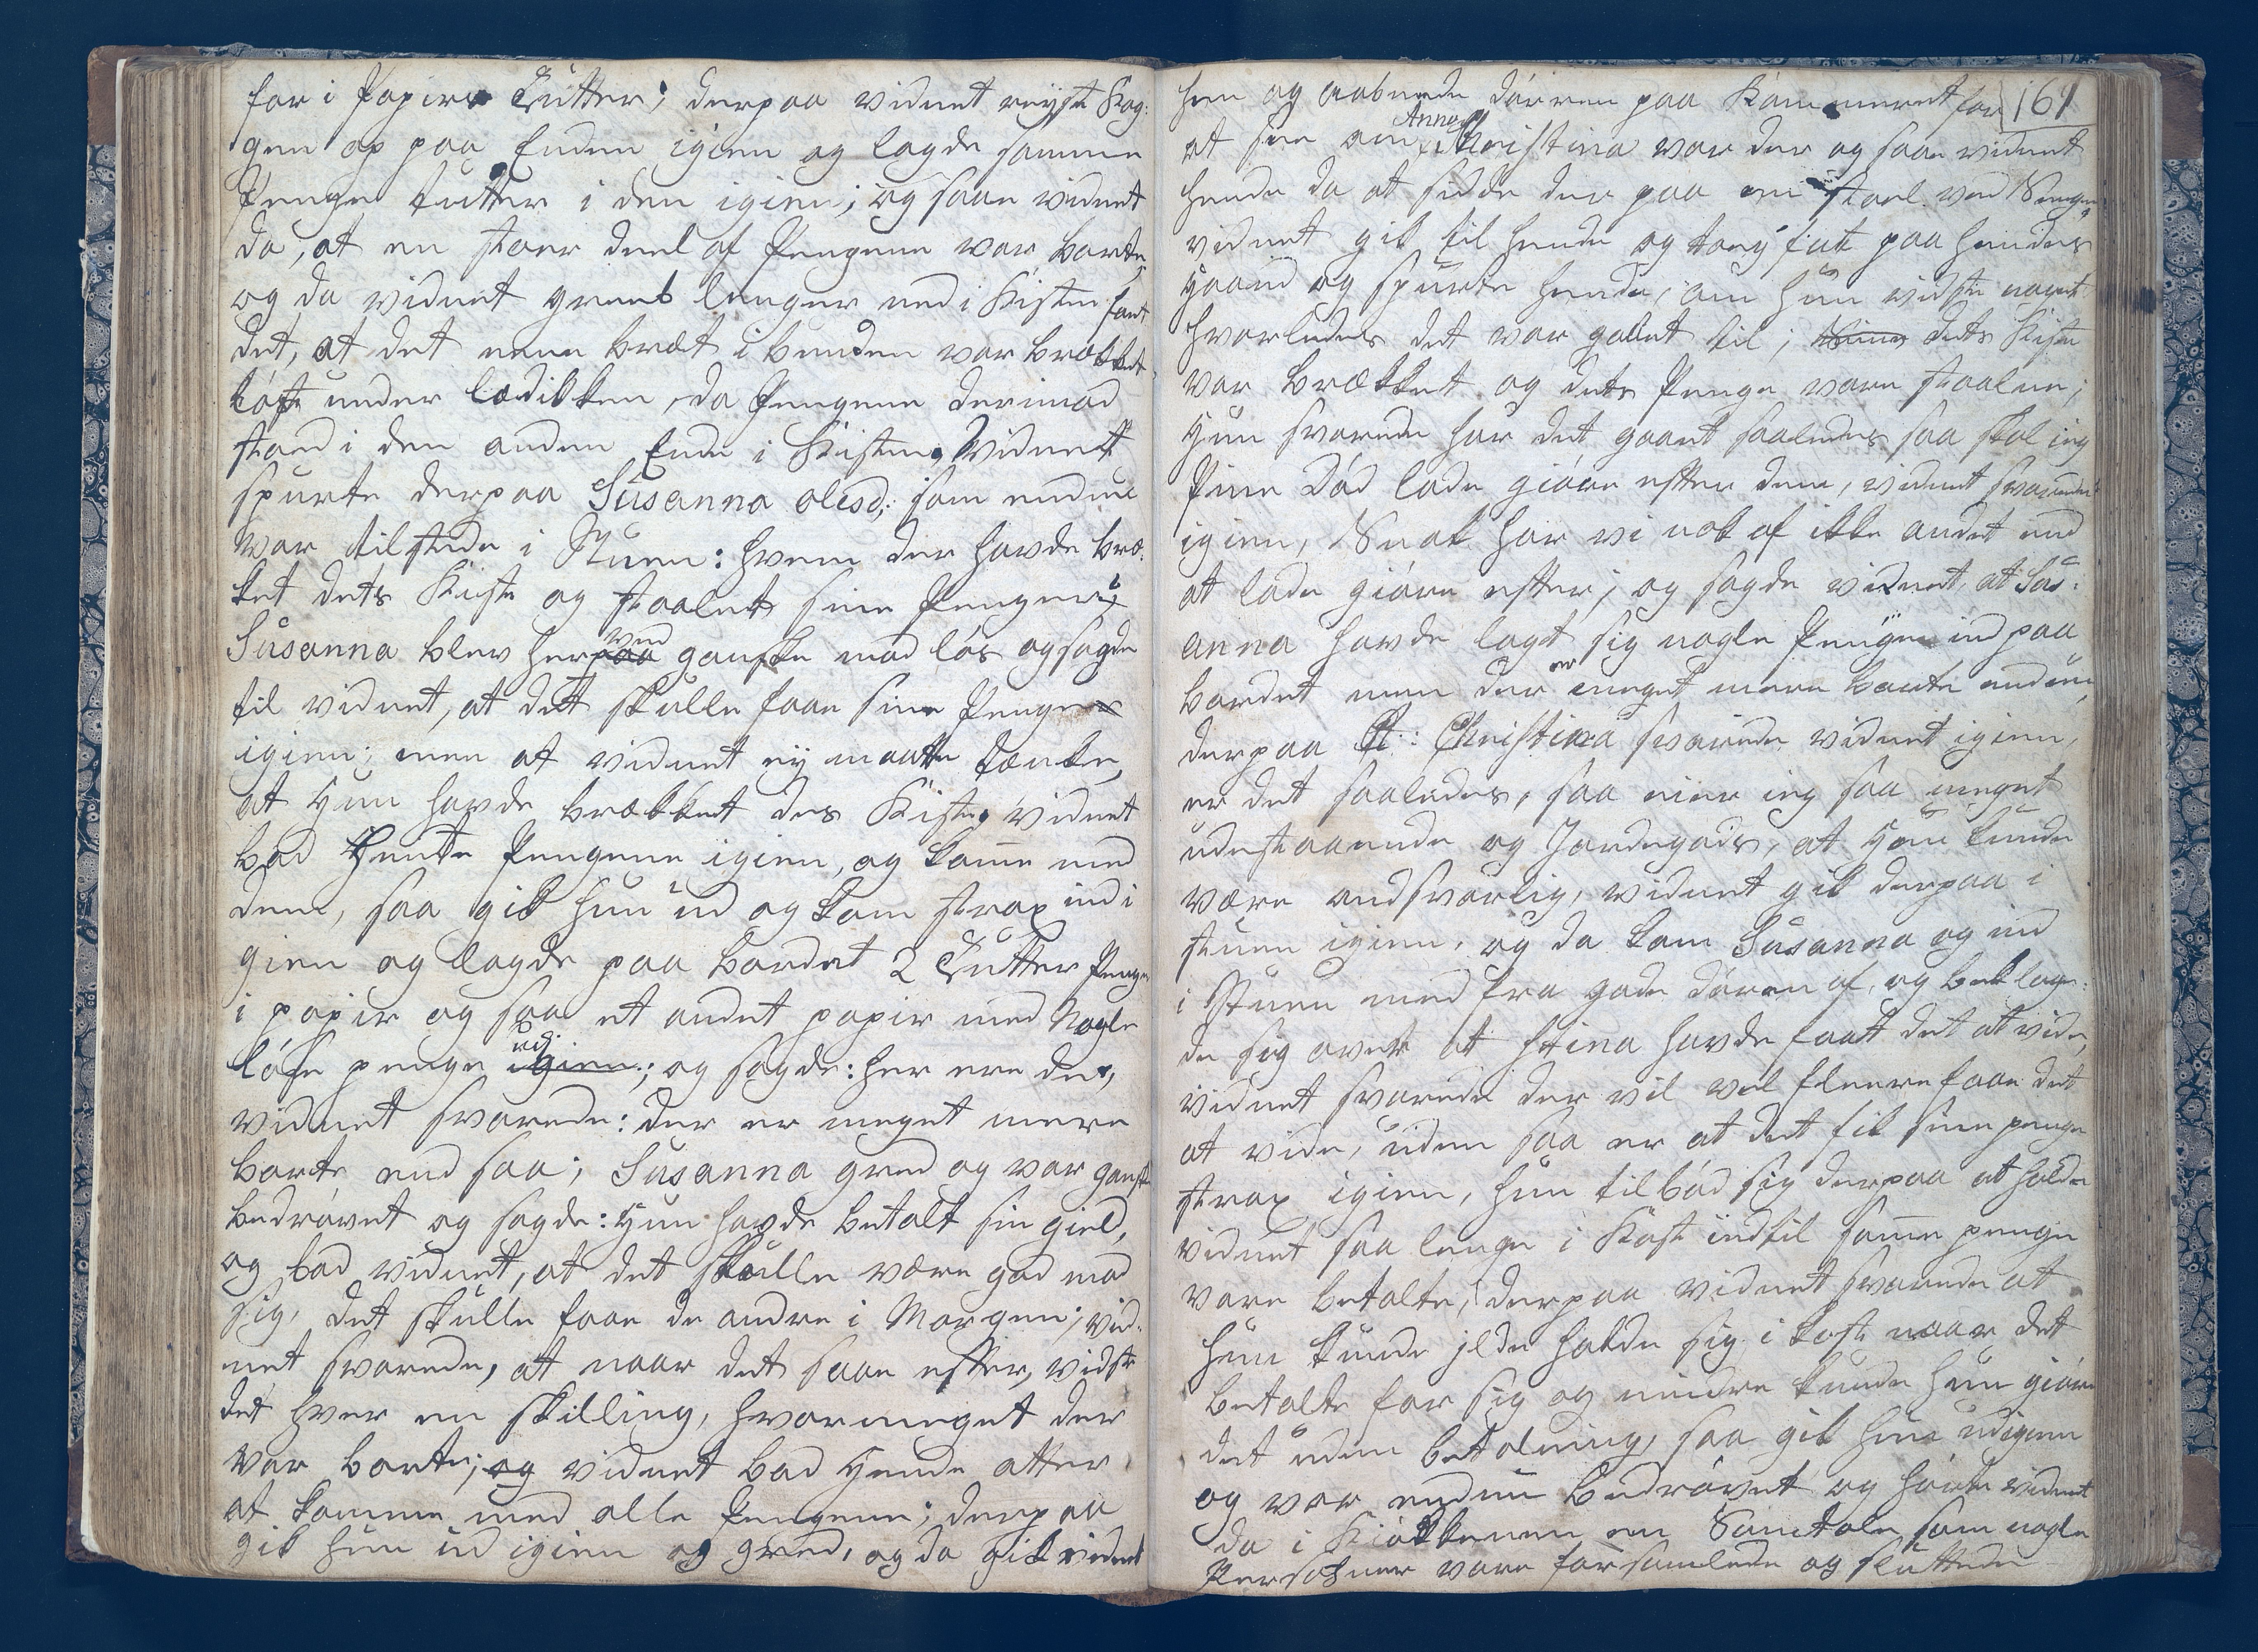 for i Papirs Tutter; derpaa vidnet reyste Kag-
gen op paa Enden igien og lagde samme
Penge tutter i den igien; og saae vidnet
da, at en stoer deel af Pengene var borte,
og da vidnet greeb lenger ned i Kisten fant
det, at det eene bræt i bunden var brækket
løst under lædikken, da Pengene derimod
stoed i den anden Ende i Kisten. Vidnet
spurte derpaa Susanna olesd: som endnu
var tilstede i Stuen: hvem der havde bræ-
ket dets Kiste og staalet sine Penger?
Susanna blev herved ganske mod løs og sagde
til vidnet, at det skulle faae sine Penge
igien; men at vidnet ey maatte tænke,
at Hun havde brækket des Kiste, vidnet
bad Hente Pengene igien, og kom̅e med
dem, saa gik hun ud og kom strax ind i
gien og lagde paa bordet 2 Tutter Penge
i papir og saa et andet papir med Nogle
løse penge udj; og sagde: her ere de,
vidnet svarede: der er meget mere
borte end saa; Susanna gred og var ganske
bedrøvet og sagde: Hun havde betalt sin gield,
og bad vidnet, at det skulle være god mod
sig, det skulle faae de andre i Morgen; vid-
net svarede, at naar det saae efter, vidste
det hver en skilling, hvormeget der
var borte; og vidnet bad Hende atter
at komme med alle Pengene; derpaa
gik hun ud igien og gred, og da gik vidnet
hen og aabnede dørren paa Kammeret for
161
at see om Anna Christina var der og saae vidnet
hende da at sidde der paa en stoel ved Sengen,
vidnet gik til hende og toeg fat paa hendes
Haand og spurte hende, om hun vidste noget
hvorledes det var gaaet til; dets Kiste
var brækket og dets Penge vare staalne;
Hun svarede har det gaaet saaledes saa skal ieg
Pine Død lade giøre efter dem, vidnet svarede
igien, Snak har vi nok af ikke andet end
at lade giøre efter; og sagde vidnet, at Sus-
anna havde lagt sig nogle Penge ind paa
bordet men der er meget mere borte endnu,
derpaa A: Christina svarede vidnet igien,
er det saaledes, saa eier ieg saa meget
udestaaende og Jordegods, at Hun kunde
være andsvarlig, vidnet gik derpaa i
stuen igien, og da kom Susanna og ind
i Stuen med fra gade døren af, og beklage-
de sig over at Stina havde faaet det at vide,
vidnet svarede der vil vel fleere faae det
at vide, uden saa er at det fik sine penge
strax igien, hun tilbød sig derpaa at holde
vidnet saa lenge i Kost indtil sam̅e penge
vare betalte, derpaa vidnet svarede at
hun kunde ilde holde sig i kost naar det
betalte for sig og mindre kunde hun giøre
det uden betalning, saa gik hun ud igien
og var endnu bedrøvet og hørte vidnet
da i Kiøkkenen en Samtale, som nogle
Persohner vare forsamlede og sluttede